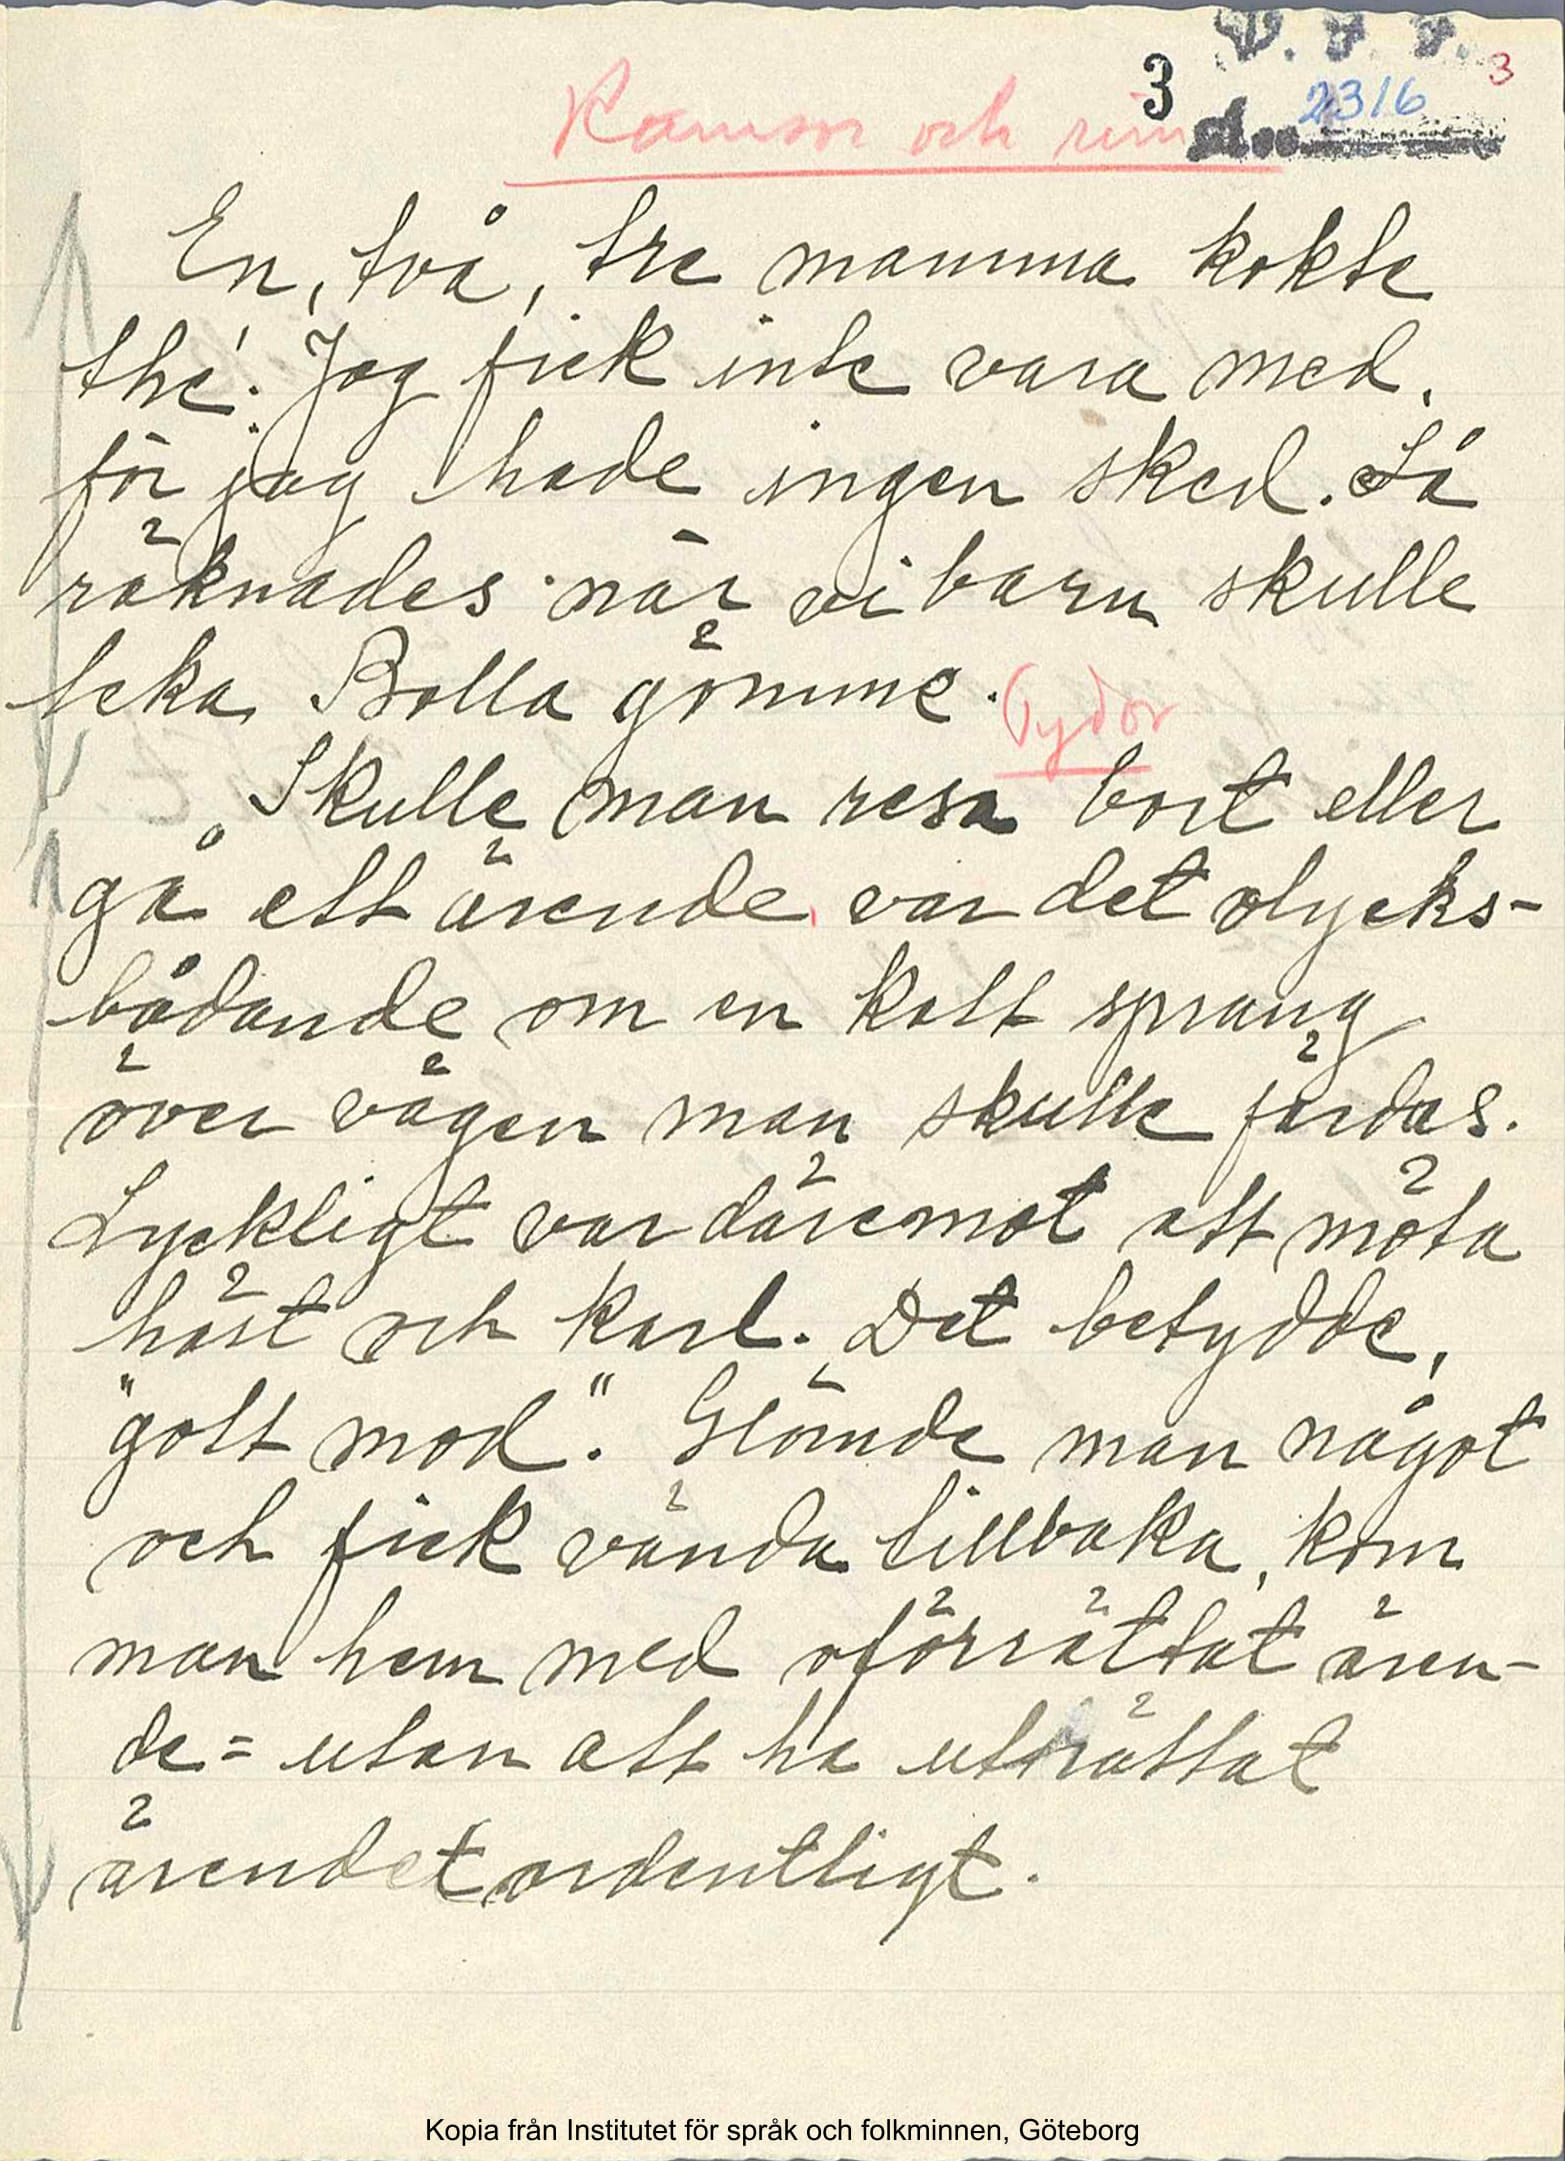 V. F. F.
3
3
2316
Ramsor och rim
En, två, tre mamma kokte
thé. Jag fick inte vara med,
för jag hade ingen sked. Så
räknades när vi barn skulle
leka Bolla gömme.
Tydor
Skulle man resa bort eller
gå ett ärende, var det olycks-
bådande om en katt sprang
över vägen man skulle färdas.
Lyckligt var däremot att möta
häst och karl. Det betydde,
"gott mod". Glömde man något
och fick vända tillbaka, kom
man hem med oförrättat ären-
de = utan att ha uträttat
ärendet ordentligt.
Kopia från Institutet för språk och folkminnen, Göteborg